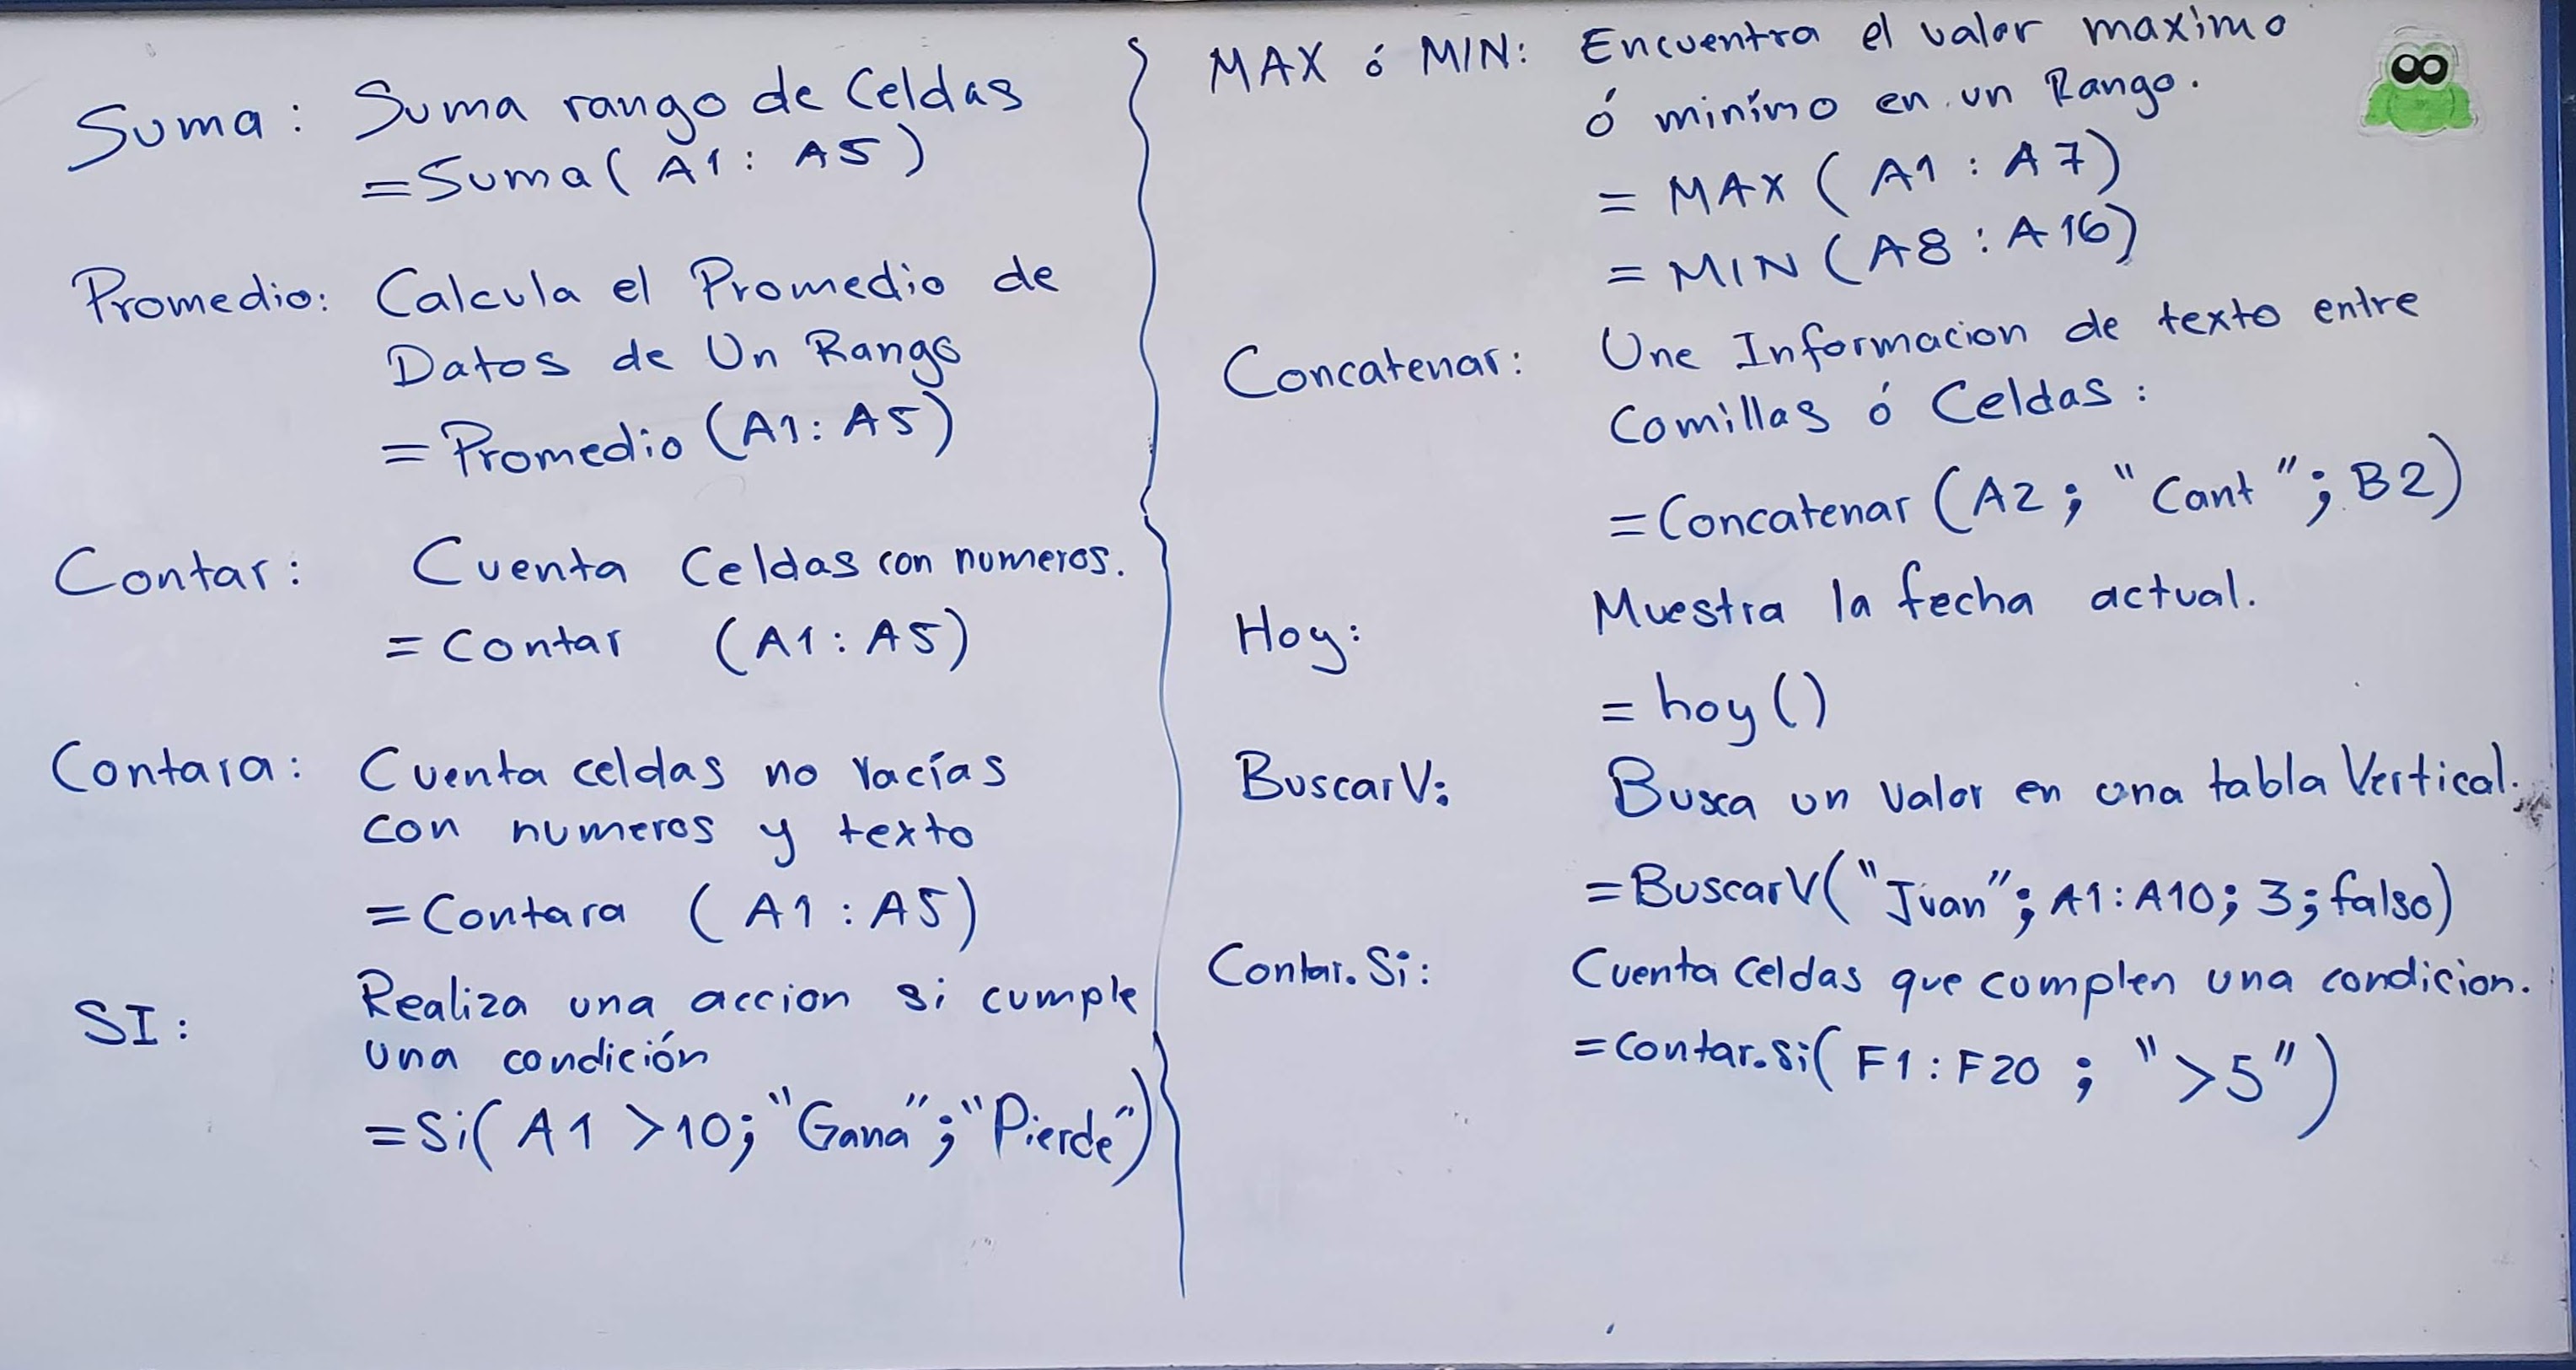 Suma: Suma rango de Celdas
=Suma( A1: A5)
Promedio: Calcula el Promedio de
Datos de Un Rango
=Promedio (A1: A5)
Contar: Cuenta Celdas con numeros.
= Contar (A1: A5)
Contara: Cuenta celdas no vacías
con numeros y texto
=Contara (A1: A5)
SI: Realiza una accion si cumple
una condición
=Si( A1 >10; "Gana"; "Pierde")
MAX ó MIN: Encuentra el valor maximo
ó minímo en un Rango.
= MAX ( A1 : A7)
= MIN (A8 : A16)
Concatenar: Une Informacion de texto entre
Comillas ó Celdas:
=Concatenar (A2; "Cant"; B2)
Hoy: Muestra la fecha actual.
= hoy()
BuscarV: Busca un Valor en una tabla Vertical.
=BuscarV("Juan"; A1: A10; 3; falso)
Contar.Si: Cuenta Celdas que cumplen una condicion.
=Contar.si( F1: F20 ; ">5")